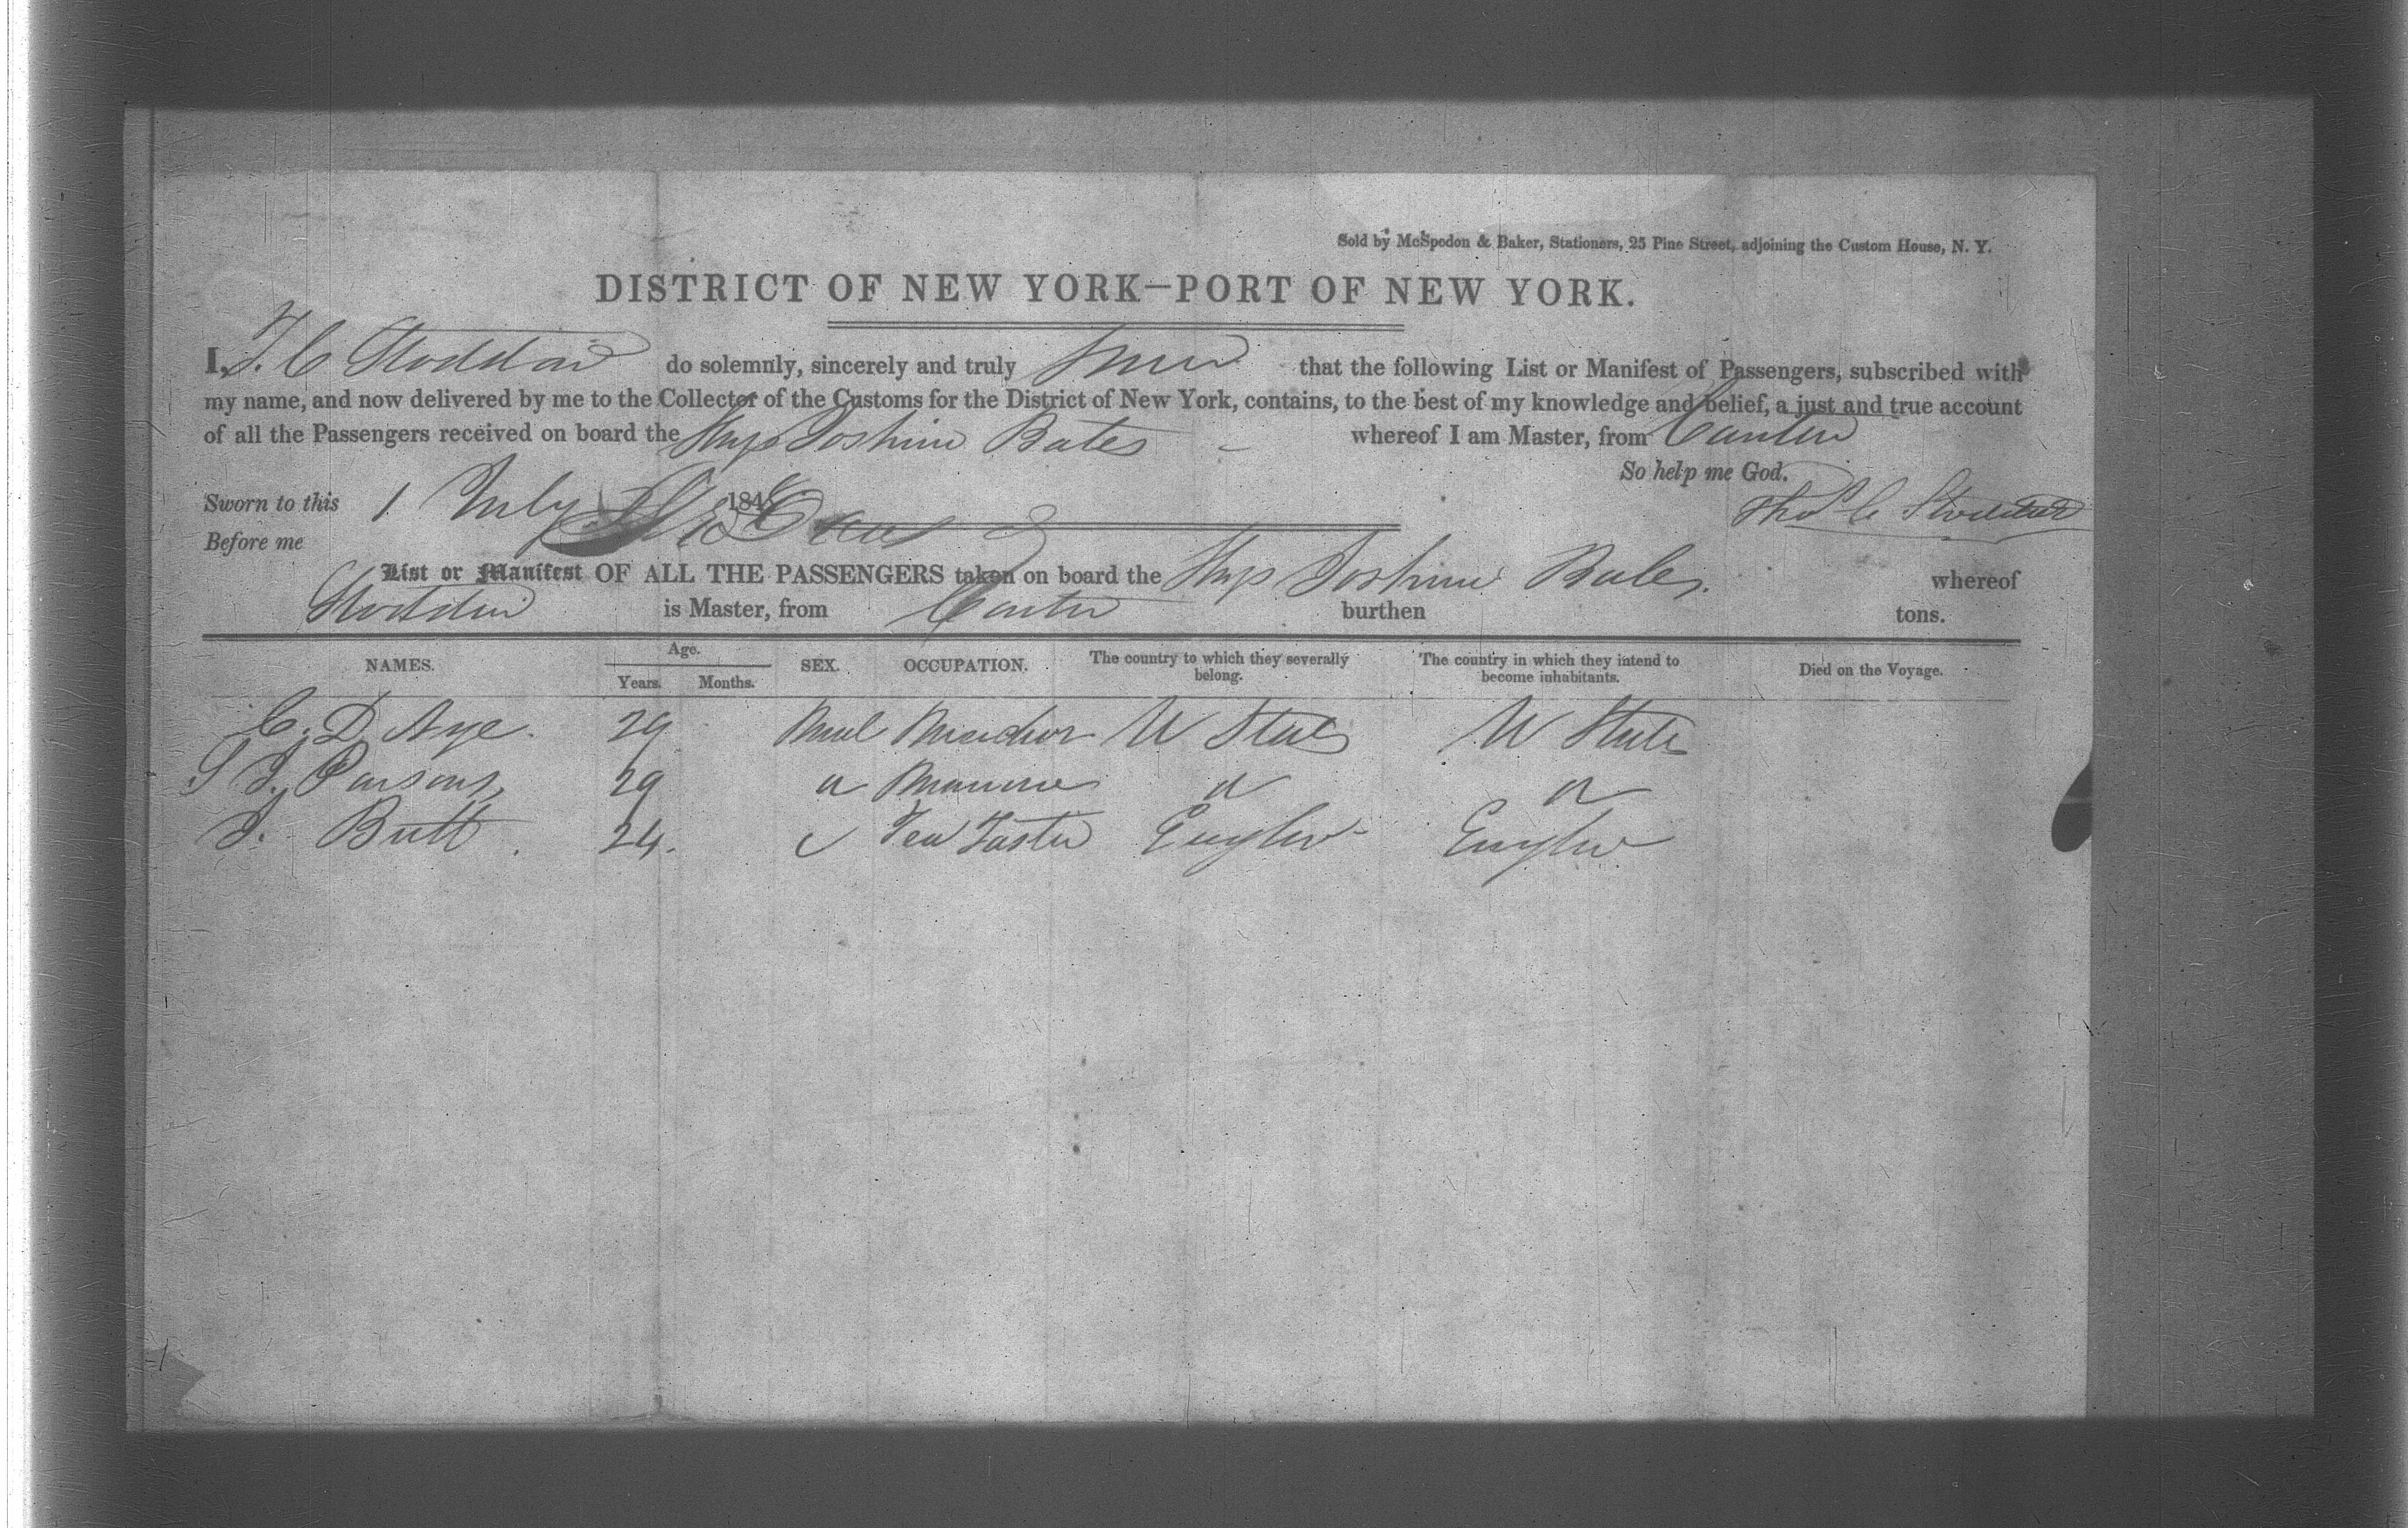 Sold by McSpedon & Baker, Stationers, 25 Pine Street, adjoining the Custom House, N. Y.
DISTRICT OF NEW YORK—PORT OF NEW YORK.
I, T. C Stoddard do solemnly, sincerely and truly swear that the following List or Manifest of Passengers, subscribed with
my name, and now delivered by me to the Collector of the Customs for the District of New York, contains, to the best of my knowledge and belief, a just and true account
of all the Passengers received on board the Ship Joshua Bates whereof I am Master, from Canton
So help me God.
Sworn to this 1 July 184 Thos C Stoddard
Before me
List or Manifest OF ALL THE PASSENGERS taken on board the Ship Joshua Bates whereof
Stoddard is Master, from Canton burthen tons.
NAMES. Age. Years. Months. SEX. OCCUPATION. The country to which they severally belong. The country in which they intend to become inhabitants. Died on the Voyage.
C. D. Nye. 29 Male U States U States
Parsons 29 " Mariner " "
J. Butt. 24. " Tea Taster England England